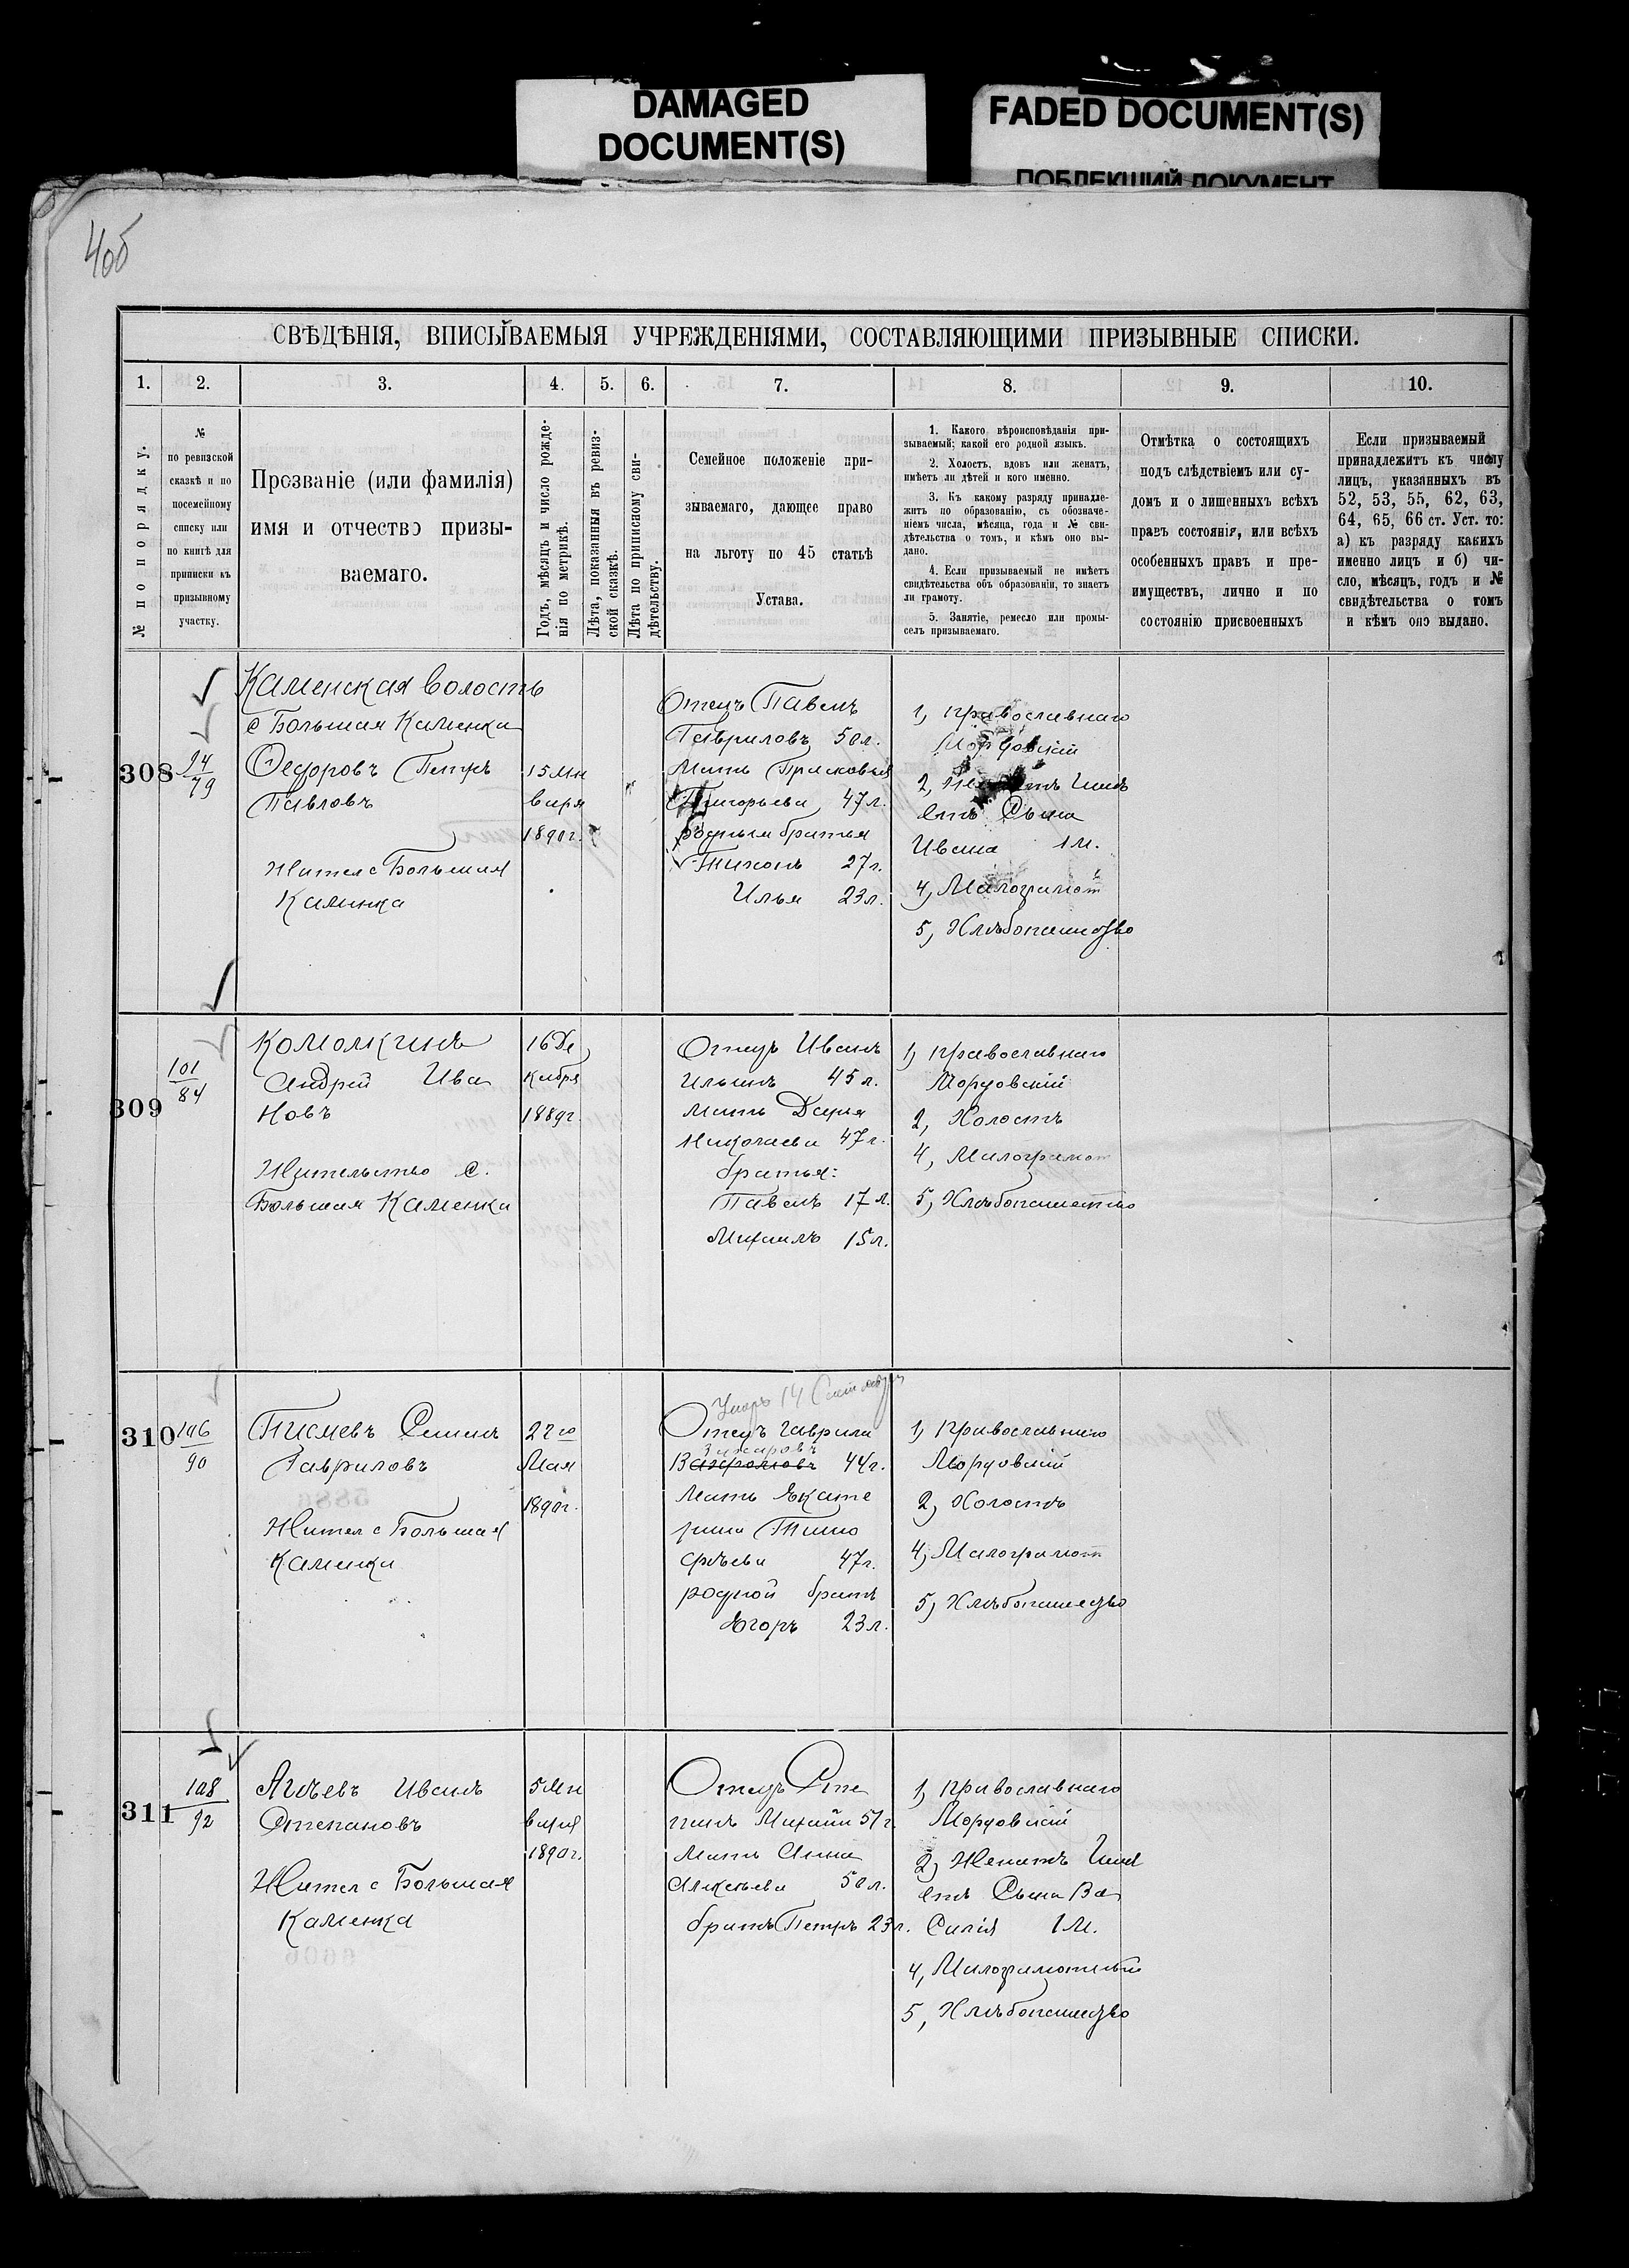 DAMAGED
DOCUMENT(S)
FADED DOCUMENT(S)
ПОБЛЕКШИЙ ДОКУМЕНТ
40б
СВѢДѢНІЯ, ВПИСЫВАЕМЫЯ УЧРЕЖДЕНІЯМИ, СОСТАВЛЯЮЩИМИ ПРИЗЫВНЫЕ СПИСКИ.
1. 2. 3. 4. 5. 6. 7. 8. 9. 10.
№ по порядку.
№
по ревизской
сказкѣ и по
посемейному
списку или
по книгѣ для
приписки къ
призывному
участку.
Прозваніе (или фамилія)
имя и отчество призы-
ваемаго.
Годъ, мѣсяцъ и число рожде-
нія по метрикѣ.
Лѣта, показанныя въ ревиз-
ской сказкѣ.
Лѣта по приписному сви-
дѣтельству.
Семейное положеніе при-
зываемаго, дающее право
на льготу по 45 статьѣ
Устава.
1. Какого вѣроисповѣданія при-
зываемый; какой его родной языкъ.
2. Холостъ, вдовъ или женатъ,
имѣетъ ли дѣтей и кого именно.
3. Къ какому разряду принадле-
житъ по образованію, съ обозначе-
ніемъ числа, мѣсяца, года и № сви-
дѣтельства о томъ, и кѣмъ оно вы-
дано.
4. Если призываемый не имѣетъ
свидѣтельства объ образованіи, то знаетъ
ли грамоту.
5. Занятіе, ремесло или промы-
селъ призываемаго.
Отмѣтка о состоящихъ
подъ слѣдствіемъ или су-
домъ и о лишенныхъ всѣхъ
правъ состоянія, или всѣхъ
особенныхъ правъ и пре-
имуществъ, лично и по
состоянію присвоенныхъ
Если призываемый
принадлежитъ къ числу
лицъ, указанныхъ въ
52, 53, 55, 62, 63,
64, 65, 66 ст. Уст. то:
а) къ разряду какихъ
именно лицъ и б) чи-
сло, мѣсяцъ, годъ и №
свидѣтельства о томъ
и кѣмъ оно выдано.
308
94
79
Каменская волость
с Большая Каменка
Федоровъ Петръ
Павловъ
Жител с Большая
Каменка
15 Ян
варя
1890г.
Отецъ Павелъ
Гавриловъ 50л.
Мать Прасковья
Григорьева 47л.
родныи братья
Тихонъ 27л.
Илья 23л.
1, Православнаго
Мордовскій
2, Женатъ Имѣ
етъ Сына
Ивана 1м.
4, Малограмот
5, Хлѣбопашество
309
101
84
Комолкинъ
Андрей Ива
новъ
Жительство с.
Большая Каменка
16 Де
кабря
1889г.
Отецъ Иванъ
Ильинъ 45л.
Мать Дарья
Николаева 47л.
братья:
Павелъ 17л.
Михаилъ 15л.
1, Православнаго
Мордовскій
2, Холостъ
4, Малограмот
5, Хлѣбопашество
310
106
90
Писмевъ Семенъ
Гавриловъ
Жител с Большая
Каменка
22го
Мая
1890г.
Умеръ 14 Сентября
Отецъ Гаврила
Захаровъ
44г.
Мать Екате
рина Тимо
фѣева 47г.
родной братъ
Егоръ 23л.
1, Православнаго
Мордовскій
2, Холостъ
4, Малограмот
5, Хлѣбопашество
311
108
92
Агѣевъ Иванъ
Степановъ
Жител с Большая
Каменка
5 Ян
варя
1890г.
Отецъ Сте
панъ Михайл 51г.
Мать Анна
Алексѣева 50л.
братъ Петръ 23л.
1, Православнаго
Мордовскій
2, Женатъ Имѣ
етъ Сына Ва
силія 1м.
4, Малограмотный
5, Хлѣбопашество